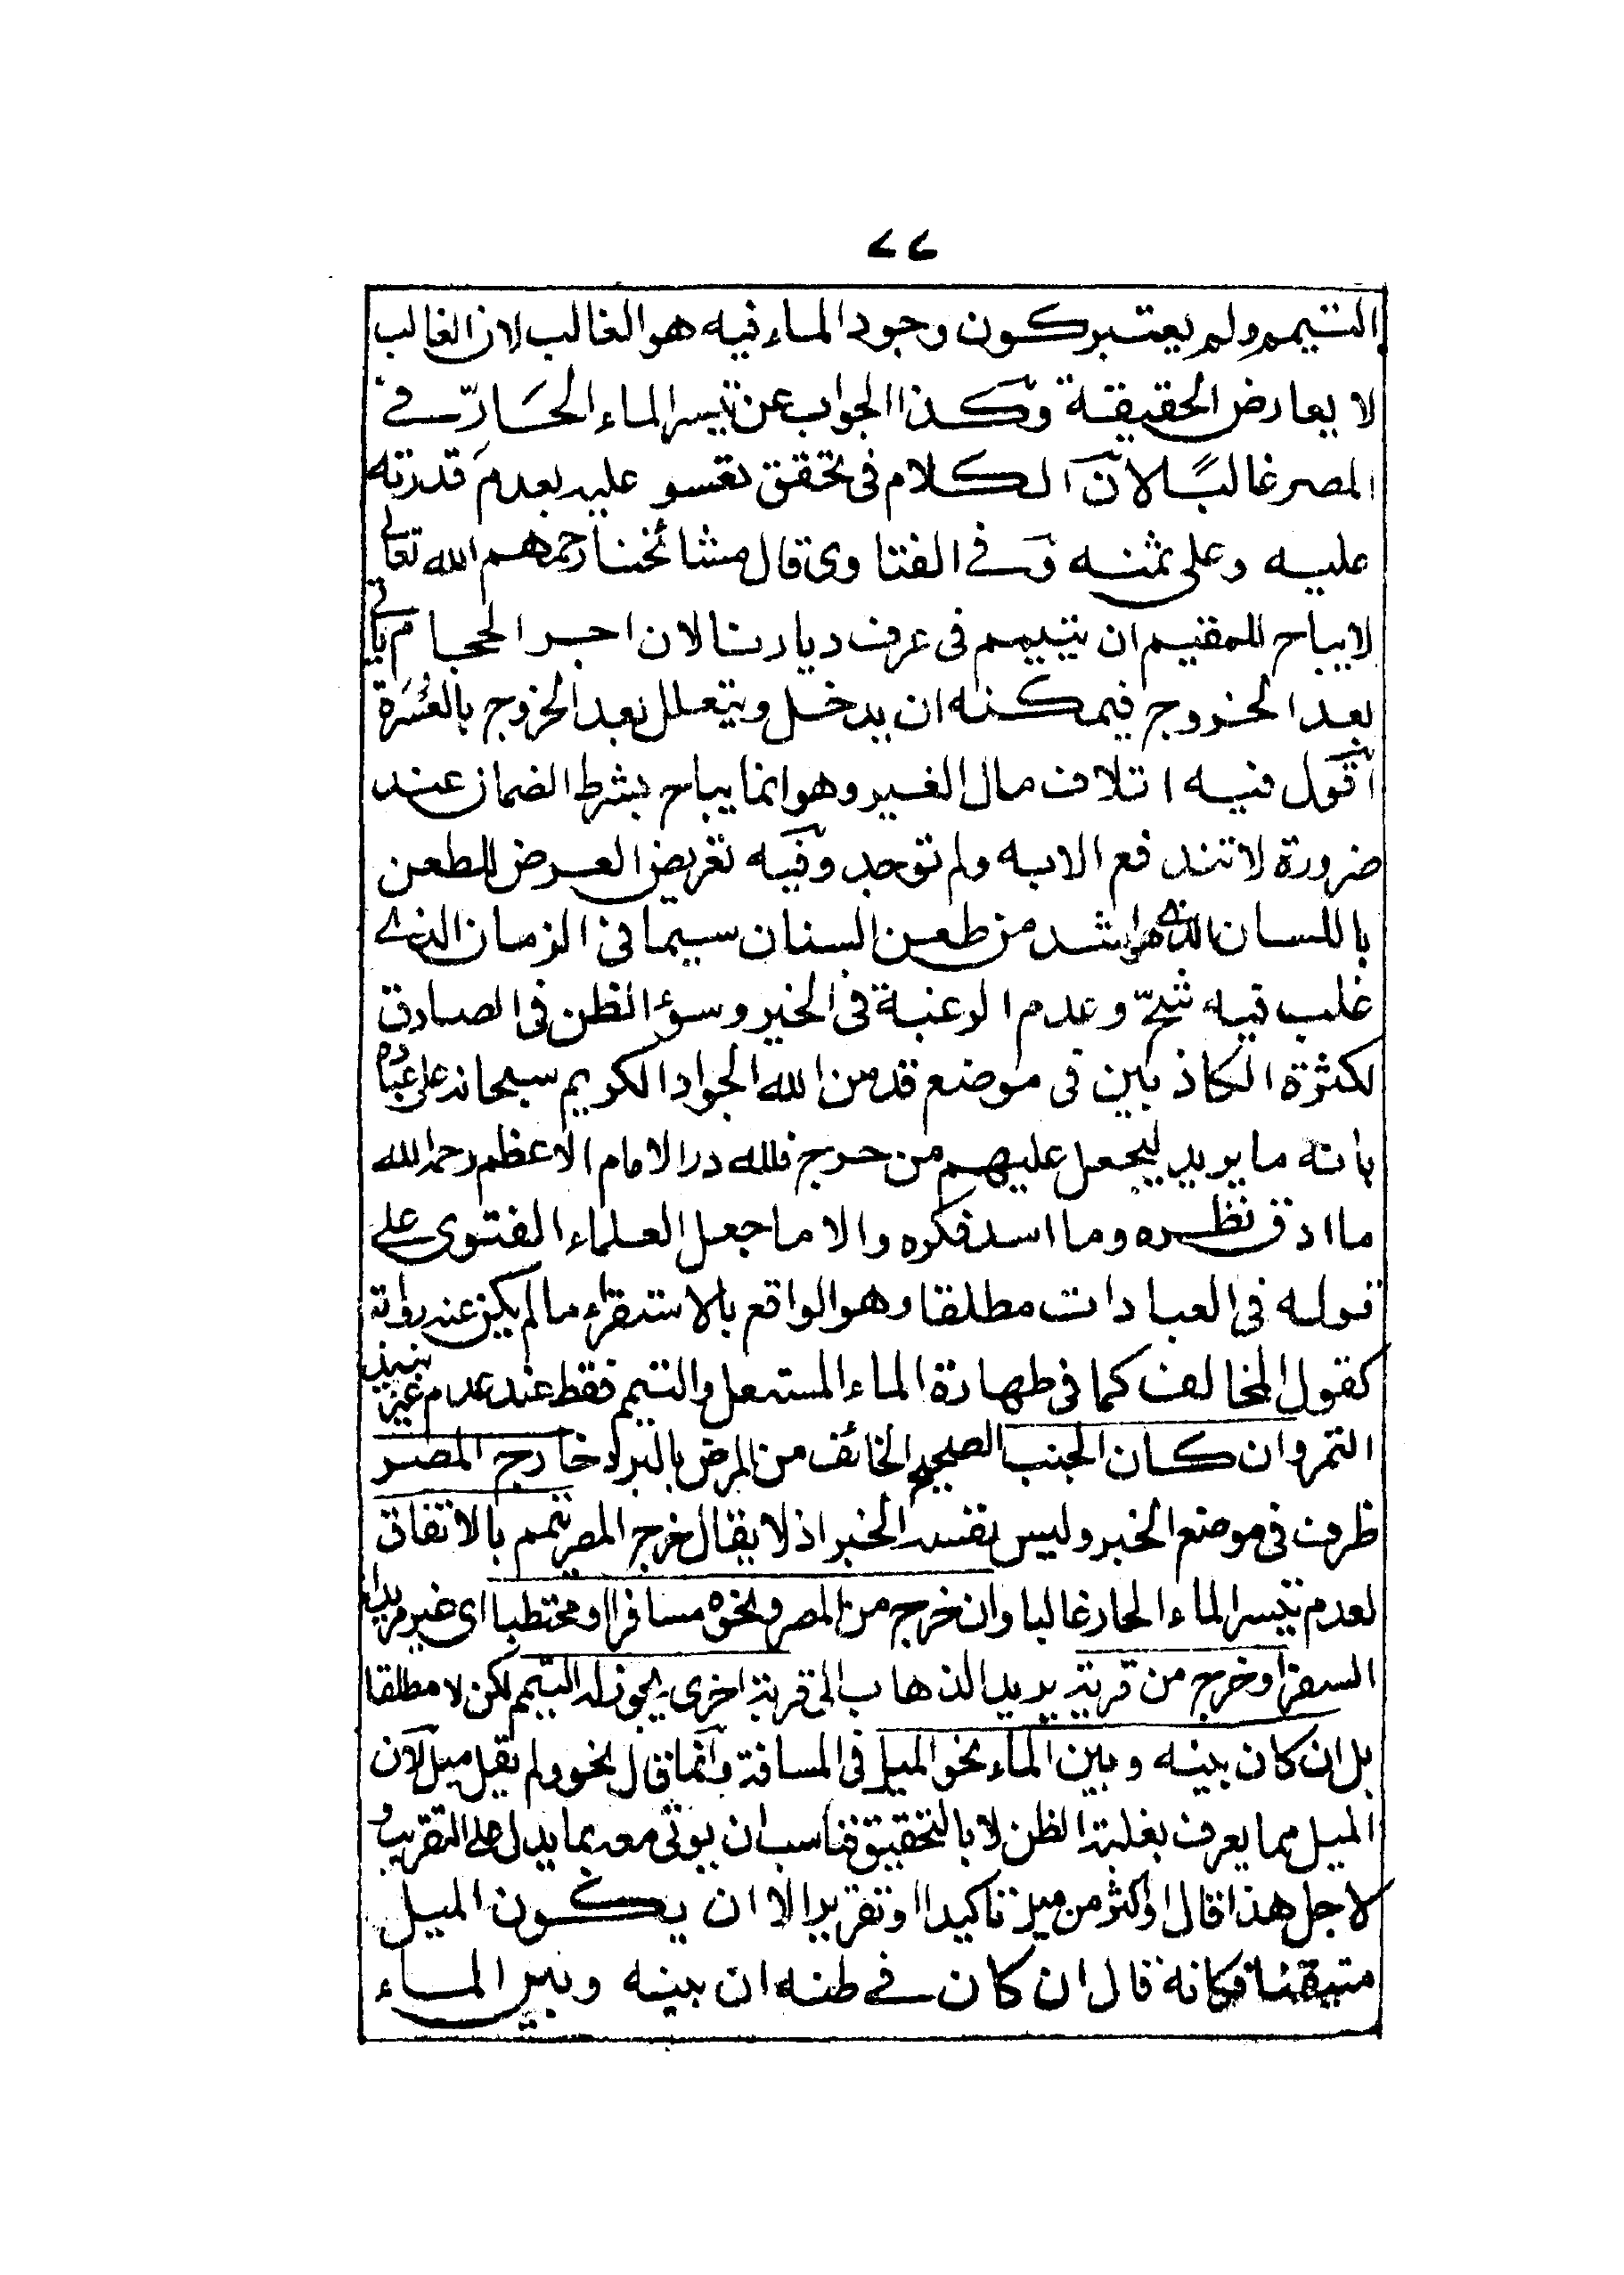 ٧٧
التيمم ولم يعتبر كون وجود الماء فيه هو الغالب لان الغالب
لا يعارض الحقيقة وكذا الجواب عن تيسر الماء الحَارّ في
المصر غالبًا لانّ الكلام فى تحقق تعسر عليه بعدم قدرته
عليه وعلى ثمنه وفي الفتاوى قال مشائخنا رحمهم الله تعالى
لا يباح للمقيم ان يتيمم فى عرف ديارنا لان اجر الحجام ياتى
بعد الخروج فيمكنه ان يدخل ويتعلل بعد الخروج بالعُسَرة
اقول فيه اتلاف مال الغير وهو انما يباح بشرط الضمان عند
ضرورة لا تندفع الا به ولم توجد وفيه تعريض العرض للطعن
باللسان الذى هو اشد من طعن السنان سيما فى الزمان الذي
غلب فيه شحّ وعدم الرغبة فى الخير وسوء الظن فى الصادق
لكثرة الكاذبين فى موضع قد من الله الجواد الكريم سبحانه على عباده
بانه ما يريد ليجعل عليهم من حرج فلله در الامام الاعظم رحمه الله
ما ادق نظره وما اسد فكره والا ما جعل العلماء الفتوى على
قوله فى العبادات مطلقا وهو الواقع بالاستقراء ما لم يكن عنه رواية
كقول المخالف كما فى طهارة الماء المستعمل والتيمم فقط عند عدم غير نبيذ
التمر وان كان الجنب الصحيح الخائف من المرض بالبرد خارج المصر
ظرف فى موضع الخبر وليس بنفسه الخبر اذ لا يقال خرج المصر يتيمم بالاتفاق
لعدم تيسر الماء الحار غالبا وان خرج من المصر ونحوه مسافرا او محتطبا اى غير مريد
السفر او خرج من قرية يريد الذهاب الى قرية اخرى يجوز له التيمم لكن لا مطلقا
بل ان كان بينه وبين الماء نحو الميل فى المسافة وانما قال نحو ولم يقل ميل لان
الميل مما يعرف بغلبة الظن لا بالتحقيق فناسب ان يوتى معه بما يدل على التقريب و
لاجل هذا قال او اكثر من ميل تاكيدا او تقريرا الا ان يكون الميل
متيقنا فكانه قال ان كان في ظنه ان بينه وبين الماء